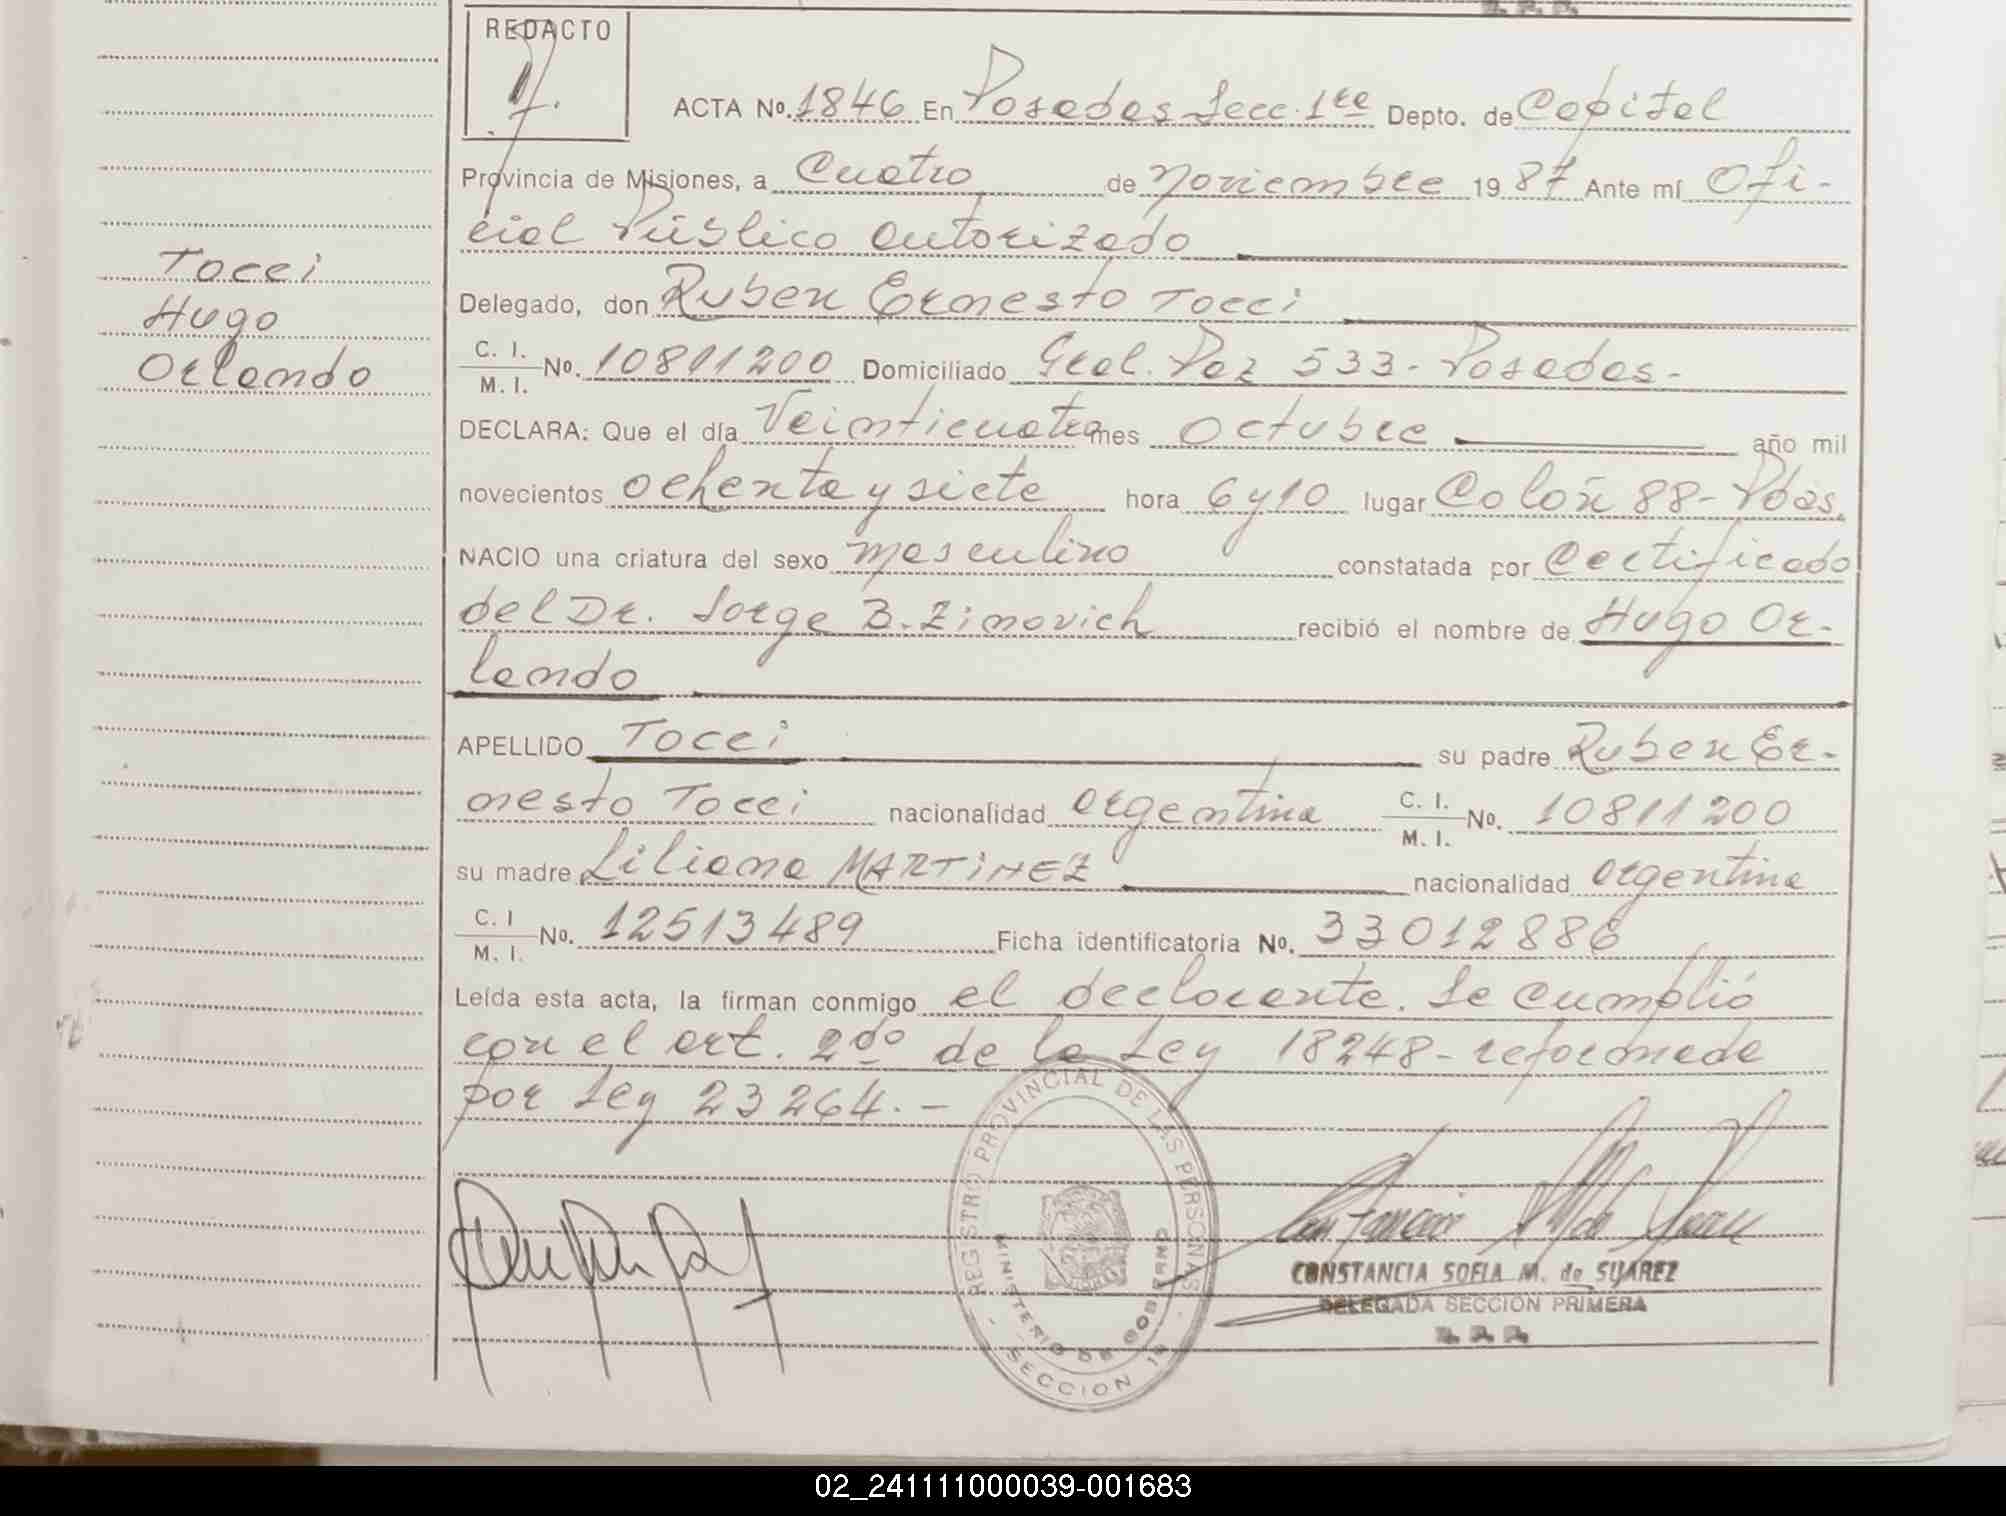 REDACTO
ACTA Nº. 1846 En Posadas Secc. 1ra Depto. de Capital
Provincia de Misiones, a Cuatro de Noviembre 1987 Ante mí Ofi-
cial Público Autorizado
Delegado, don Ruben Ernesto Tocci
C. I.
M. I. Nº. 10811200 Domiciliado Gral. Paz 533 - Posadas -
DECLARA: Que el día Veinticuatro mes Octubre año mil
novecientos ochenta y siete hora 6 y 10 lugar Colón 88 - Pdas.
NACIO una criatura del sexo masculino constatada por Certificado
del Dr. Jorge B. Zimovich recibió el nombre de Hugo Or-
lando
APELLIDO Tocci su padre Ruben Er-
nesto Tocci nacionalidad argentina C. I.
M. I. Nº. 10811200
su madre Liliana MARTiNEZ nacionalidad argentina
C. I
M. I. Nº. 12513489 Ficha identificatoria Nº. 33012886
Leída esta acta, la firman conmigo el declarante. Se cumplió
con el art. 2do de la Ley 18248 - reformada
por Ley 23264. -
Tocci
Hugo
Orlando
REGISTRO PROVINCIAL DE LAS PERSONAS
MINISTERIO DE GOBIERNO
SECCION 1a
CONSTANCIA SOFIA M. de SUAREZ
DELEGADA SECCION PRIMERA
R. P. P.
02_241111000039-001683